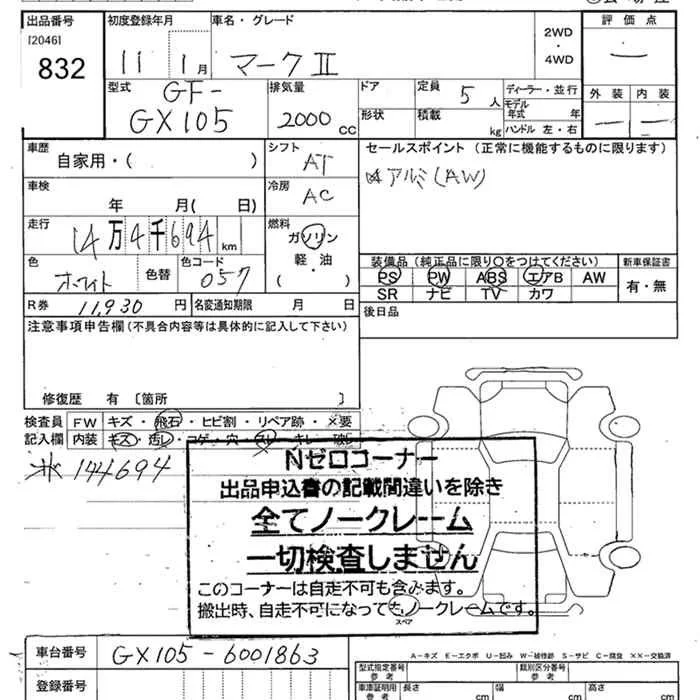 出品番号 初度登録年月 車名・グレード 2WD・4WD 評価点
[2046]
832 11 1月 マークⅡ
型式 GF-GX105 排気量 2000cc ドア 定員 5人 ディーラー・並行 外装 内装
形状 積載 kg モデル年式 年 ハンドル 左・右
車歴 自家用・( ) シフト AT セールスポイント(正常に機能するものに限ります)
アルミ(AW)
車検 年 月( 日) 冷房 AC
走行 14万4千694km 燃料 ガソリン・軽・油( )
色 ホワイト 色替 色コード 057 装備品(純正品に限り○をつけてください) 新車保証書
PS PW ABS エアB AW 有・無
SR ナビ TV カワ
R券 11,930円 名変通知期限 月 日 後日品
注意事項申告欄(不具合内容等は具体的に記入して下さい)
修復歴 有 〔箇所 〕
検査員 FW キズ・飛石・ヒビ割・リペア跡・×要
記入欄 内装 キズ・汚レ・コゲ・穴・スレ・キレ・破C
144694
Nゼロコーナー
出品申込書の記載間違いを除き
全てノークレーム
一切検査しません
このコーナーは自走不可も含みます。
搬出時、自走不可になってもノークレームです。
スペア
A-キズ E-エクボ U-凹み W-補修跡 S-サビ C-腐食 ××-交換済
車台番号 GX105-6001863 型式指定番号 類別区分番号
参考 参考
登録番号 車庫証明用 参考 長さ cm 幅 cm 高さ cm